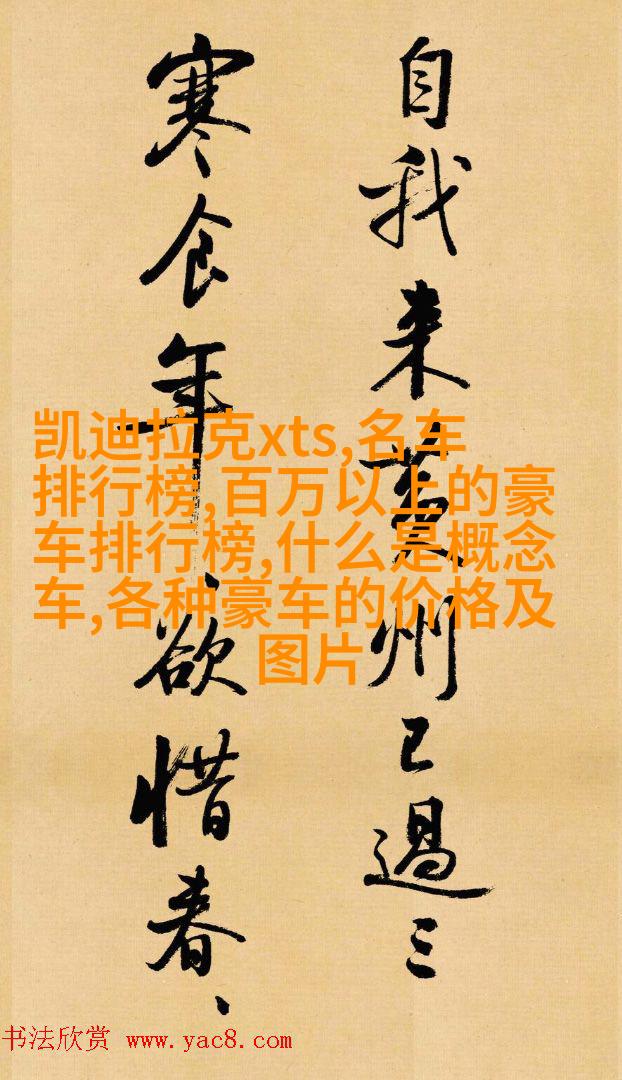 自我来黄州已過三
寒食年年欲惜春、
凯迪拉克xts,名车
排行榜,百万以上的豪
车排行榜,什么是概念
车,各种豪车的价格及
图片
书法欣赏 www.yac8.com